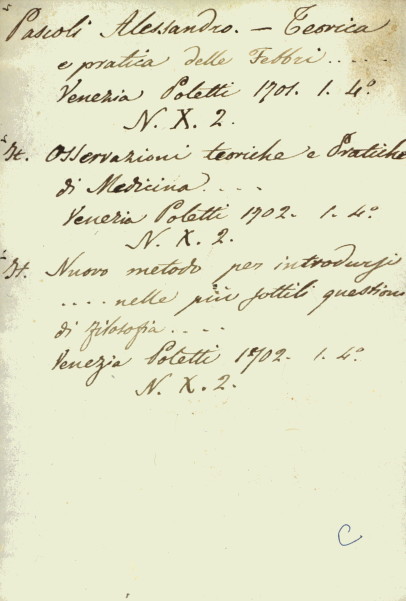 Pascoli Alessandro. — Teorica
e pratica delle Febbri .....
Venezia Poletti 1701. 1. 4º.
N. X. 2.
It. Osservazioni teoriche e Pratiche
di Medicina ....
Venezia Poletti 1702. 1. 4º.
N. X. 2.
It. Nuovo metodo per introdursi
.... nelle più sottili question
di Filosofia ....
Venezia Poletti 1702. 1. 4º.
N. X. 2.
C